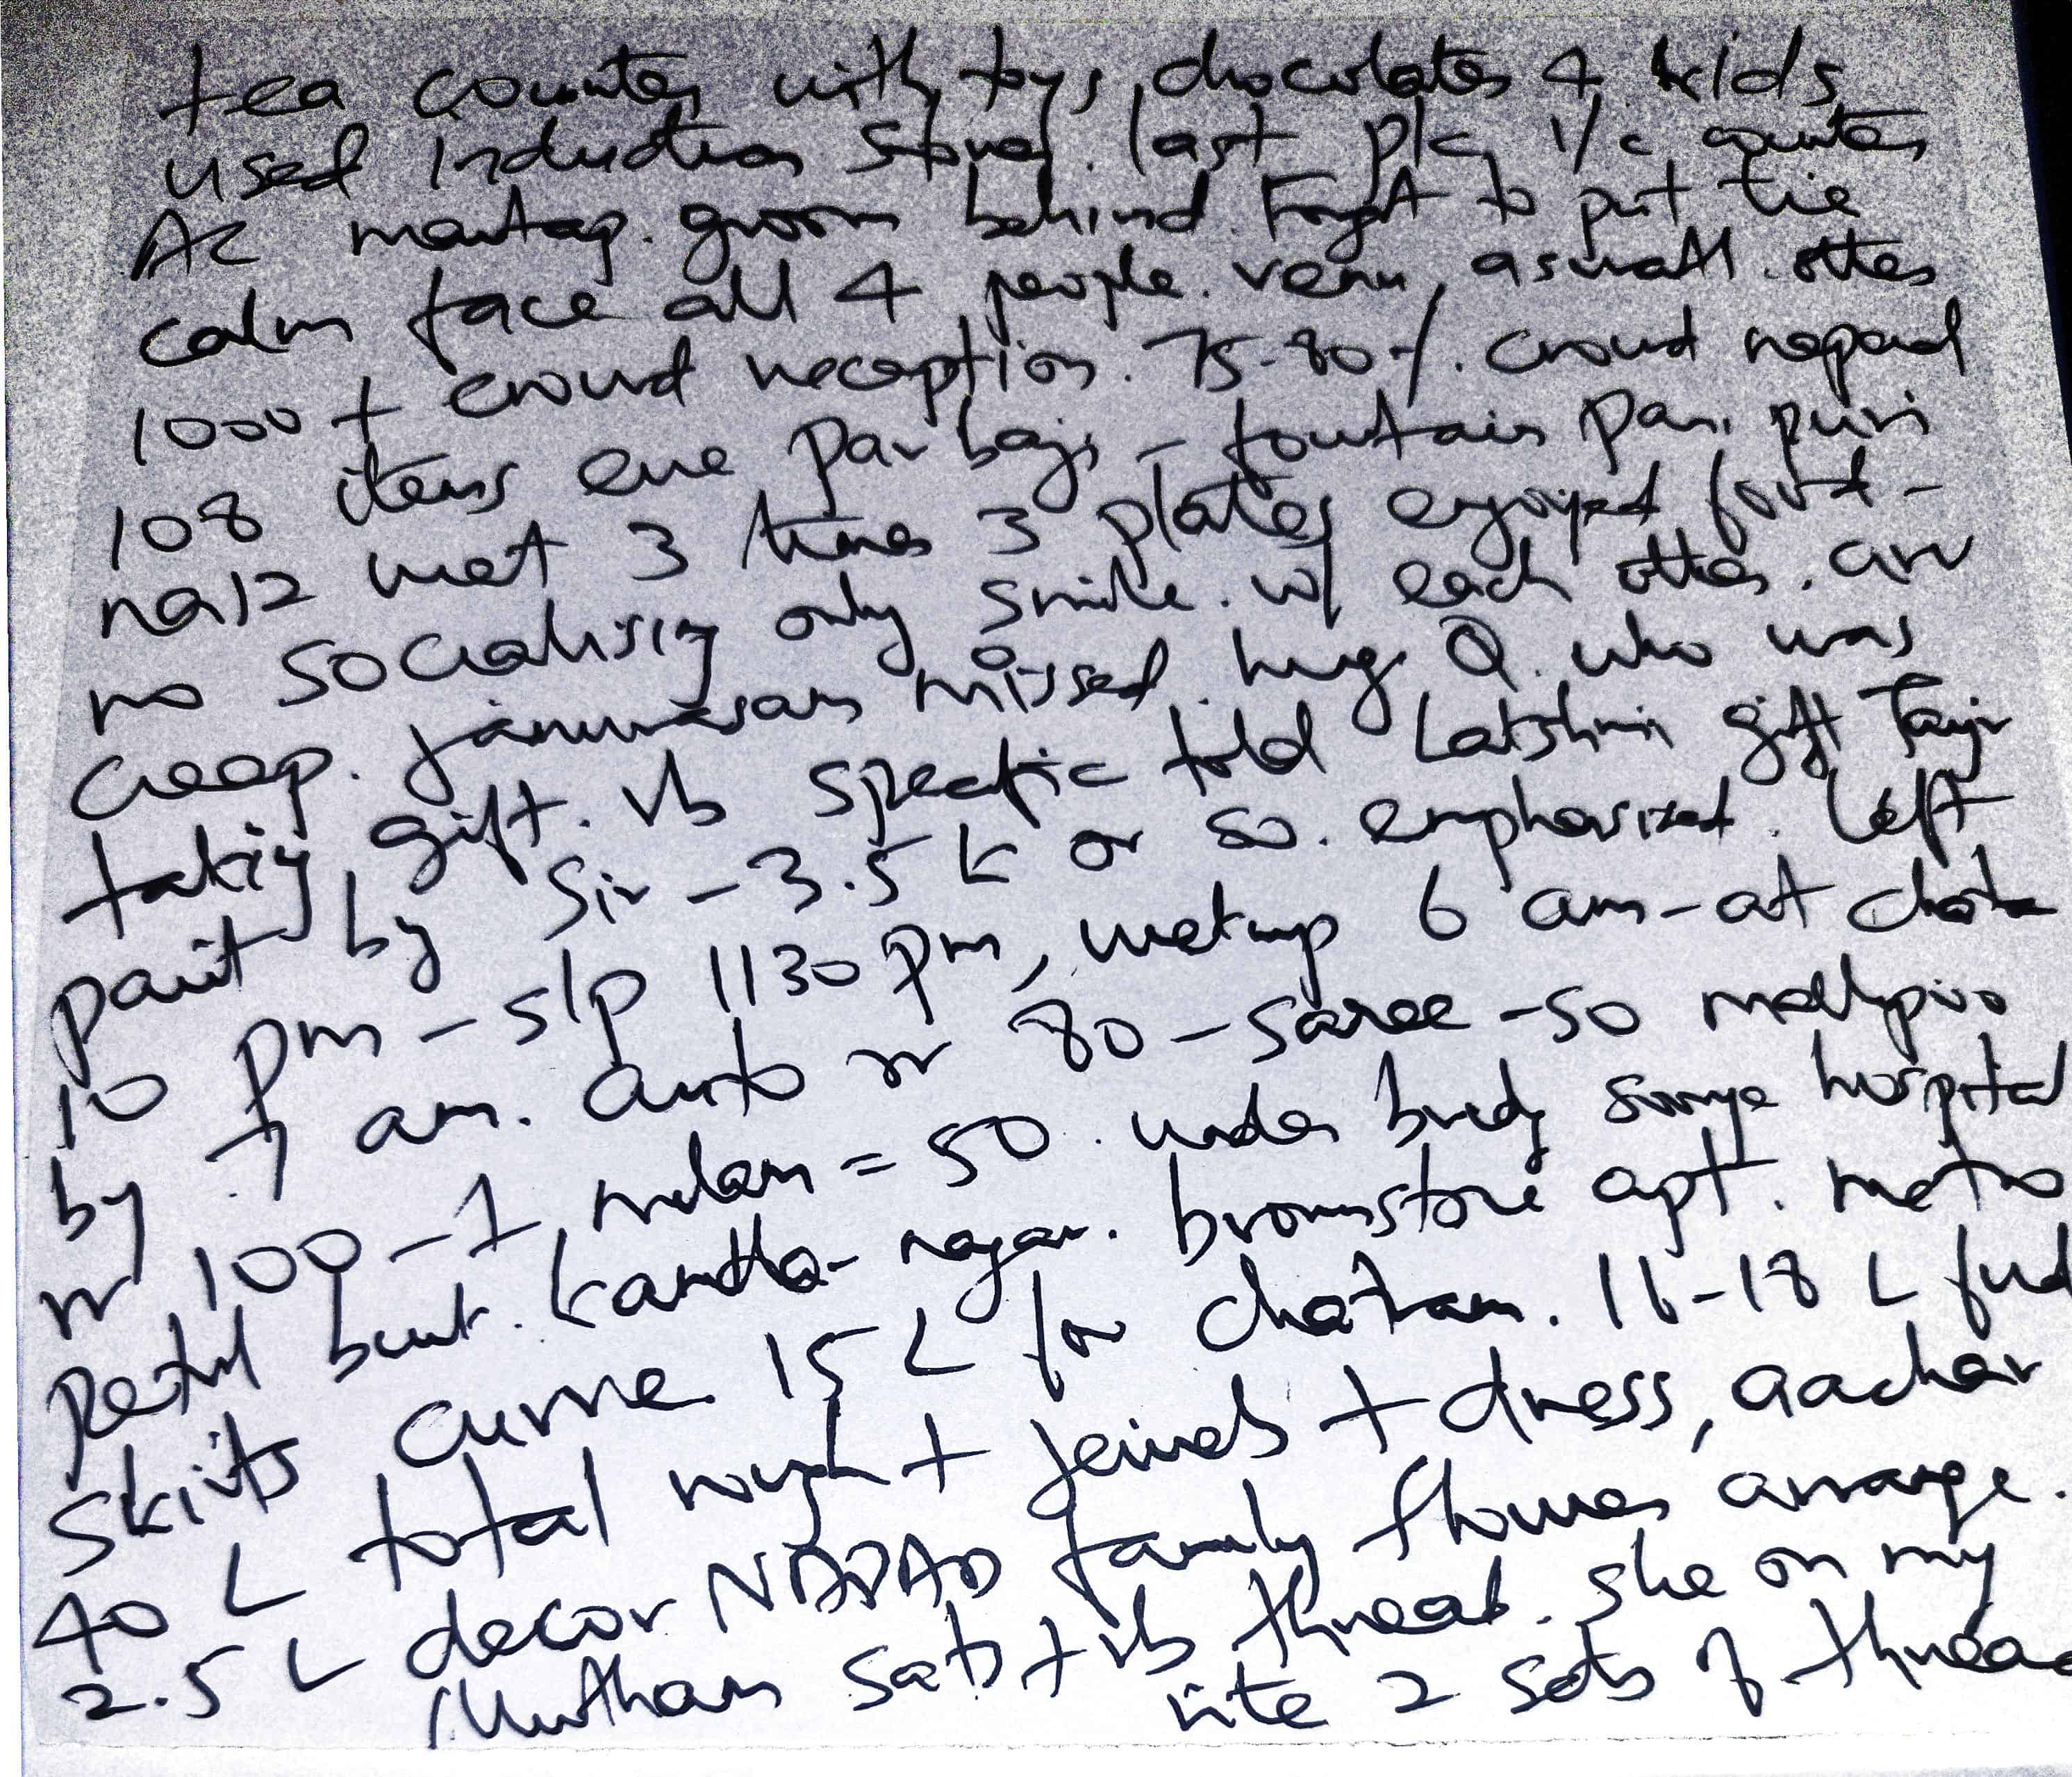 tea counter with toys, chocolates 4 kids
used induction stoves. last plc, i/c counter
AC mantap. groom behind. Forgot to put tie
calm face all 4 people. venu, aswath. other
1000 + crowd reception. 75-80%. crowd repead
108 items eve pav baji - fountain pani puri
met 3 times 3 plates enjoyed
no socialising only smile. w/ each other. arv
creep. janavasam missed. huge Q. who was
taking gift. vb specific told Lakshmi gift Tanjr
paint by Sir - 3.5 k or so. emphasized. left
10 pm - slp 1130 pm, wetmp 6 am - at
by 7 am. auto rr 80 - saree - 50 mallipoo
rr 100 - 1 molam = 50. under bridg surya hospital
petrol bunk. kantha- nagar. brownstone apt. metro
skirts curve. 15 L for chatram. 16-18 L fud
40 L total rough + jewels + dress, aachar
2.5 L decor family flowers arrange.
Muthan sats + vb thread. she on my
rite 2 sets of thread